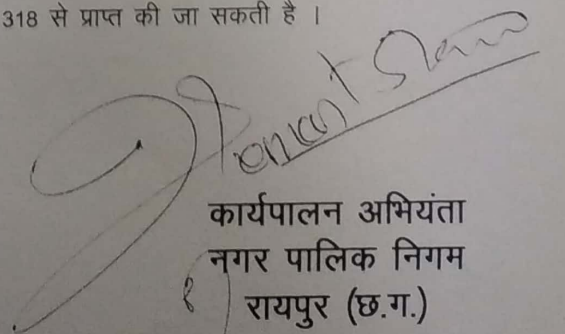 318 से प्राप्त की जा सकती है ।
Hemant
कार्यपालन अभियंता
नगर पालिक निगम
रायपुर (छ.ग.)